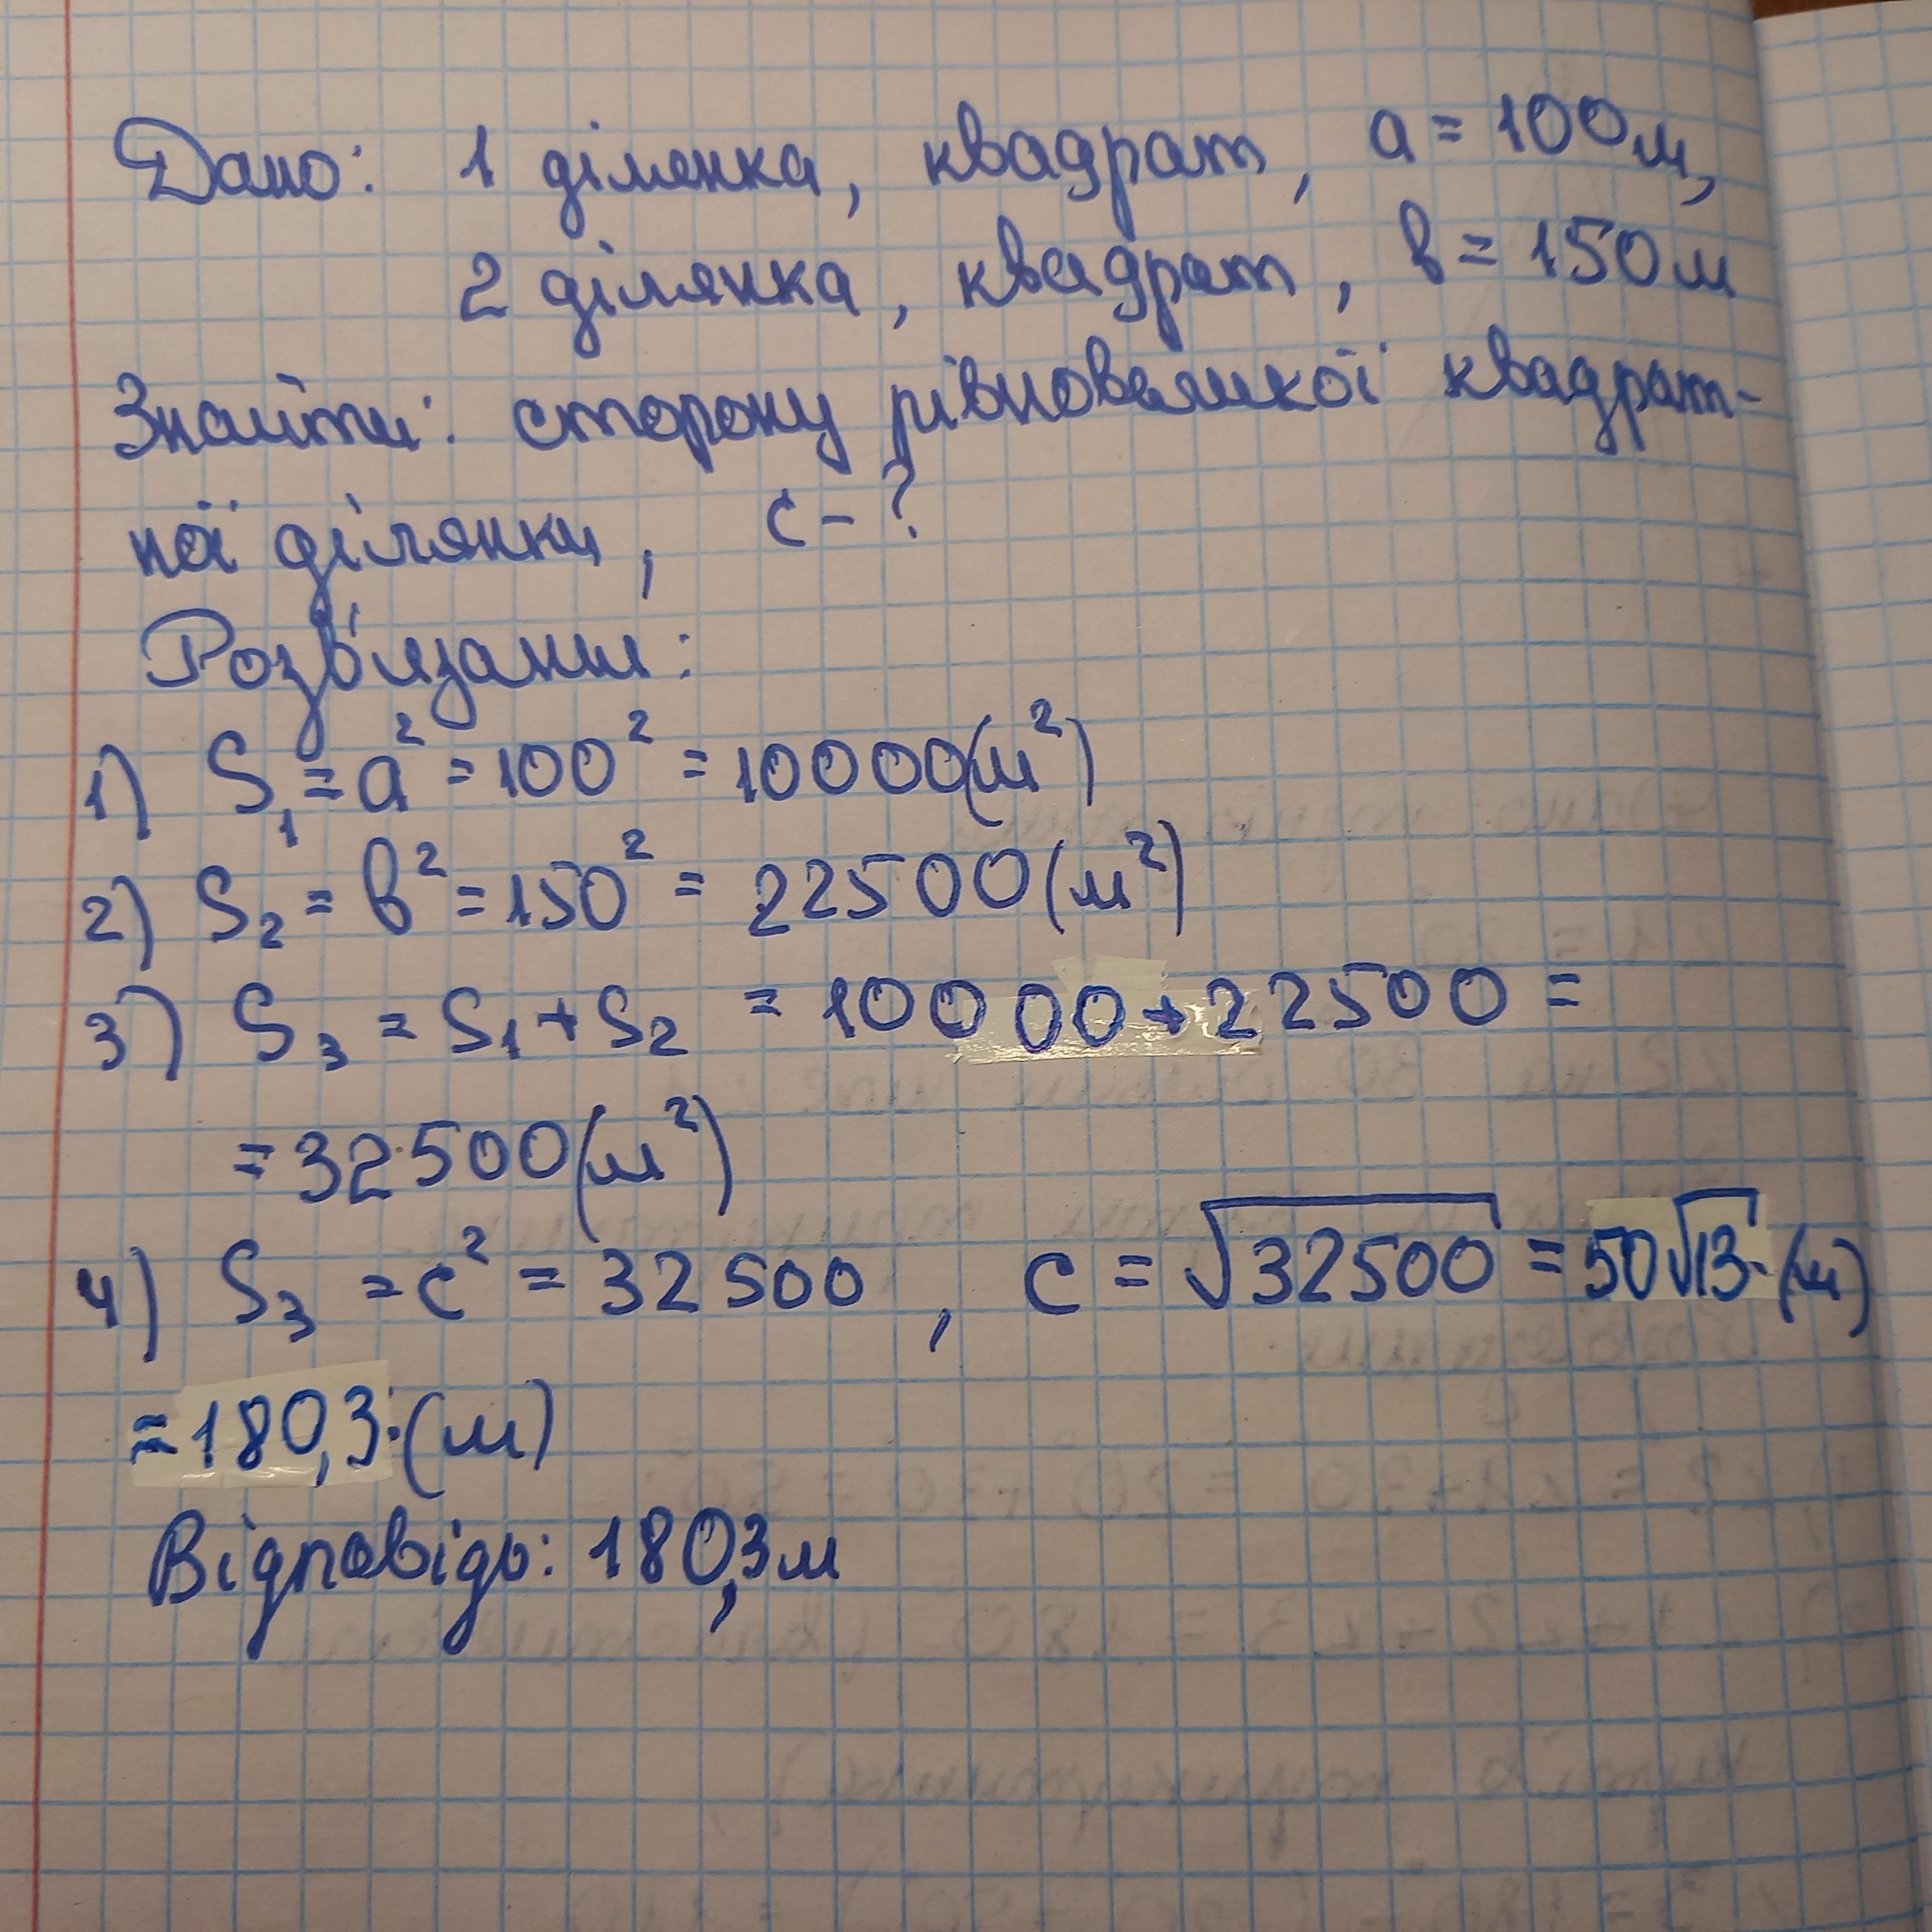 Дано: 1 ділянка, квадрат, a = 100м,
2 ділянка, квадрат, b = 150м
Знайти: сторону рівновеликої квадрат-
ної ділянки, c - ?
Розв'язання:
1) S₁ = a² = 100² = 10000(м²)
2) S₂ = b² = 150² = 22500(м²)
3) S₃ = S₁ + S₂ = 10000+22500 =
= 32500(м²)
4) S₃ = c² = 32500 , c = √32500 = 50√13 (м)
≈ 180,3 (м)
Відповідь: 180,3м